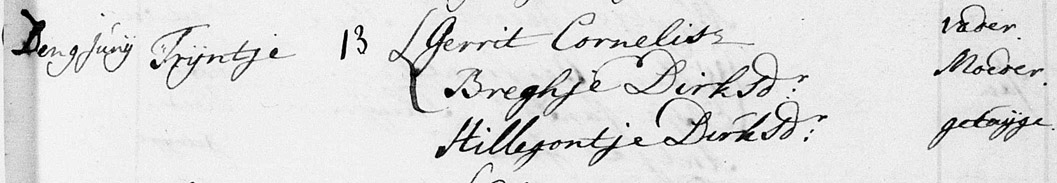 Den 9 Junij Trijntje 13 Gerrit Cornelisz vader.
Breghje Dirks Dr: Moeder.
Hillegontje Dirks Dr: getuijge